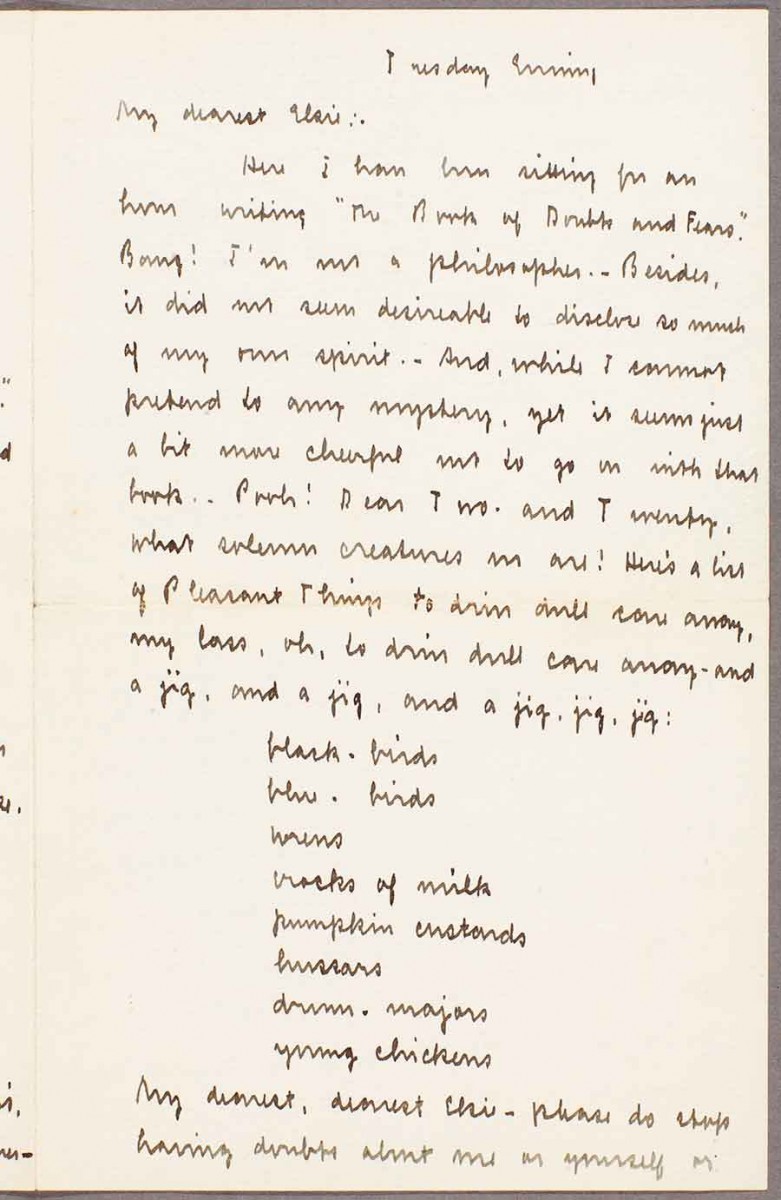 Tuesday Evening
My dearest Elsie:-
Here I have been sitting for an
hour writing "The Book of Doubts and Fears."
Bang! I'm not a philosopher. - Besides,
it did not seem desireable to disclose so much
of my own spirit. - And, while I cannot
pretend to any mystery, yet it seems just
a bit more cheerful not to go on with that
book. - Pooh! Dear Two-and-Twenty,
what solemn creatures we are! Here's a list
of Pleasant Things to drive dull care away,
my lass, oh, to drive dull care away - and
a jig, and a jig, and a jig, jig, jig:
black-birds
blue-birds
wrens
crocks of milk
pumpkin custards
hussars
drum-majors
young chickens
My dearest, dearest Elsie - please do stop
having doubts about me or yourself or
"
d